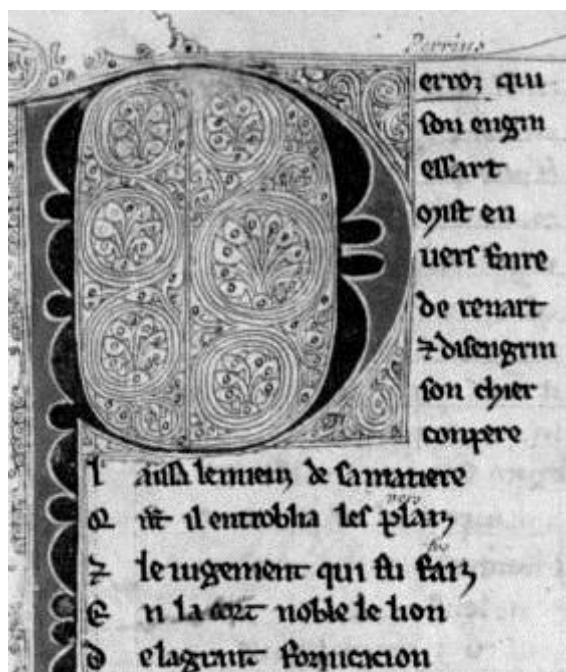 Perrius
Perroz qui
son engin
essart
Mist en
uers faire
de renart
⁊ disengrin
son chier
conpere
l aissa lemieuz de samatiere
Q nt il entroblia les plaiz
⁊ le iugement qui fu faiz
E n la cort noble le lion
d elagrant fornicacion